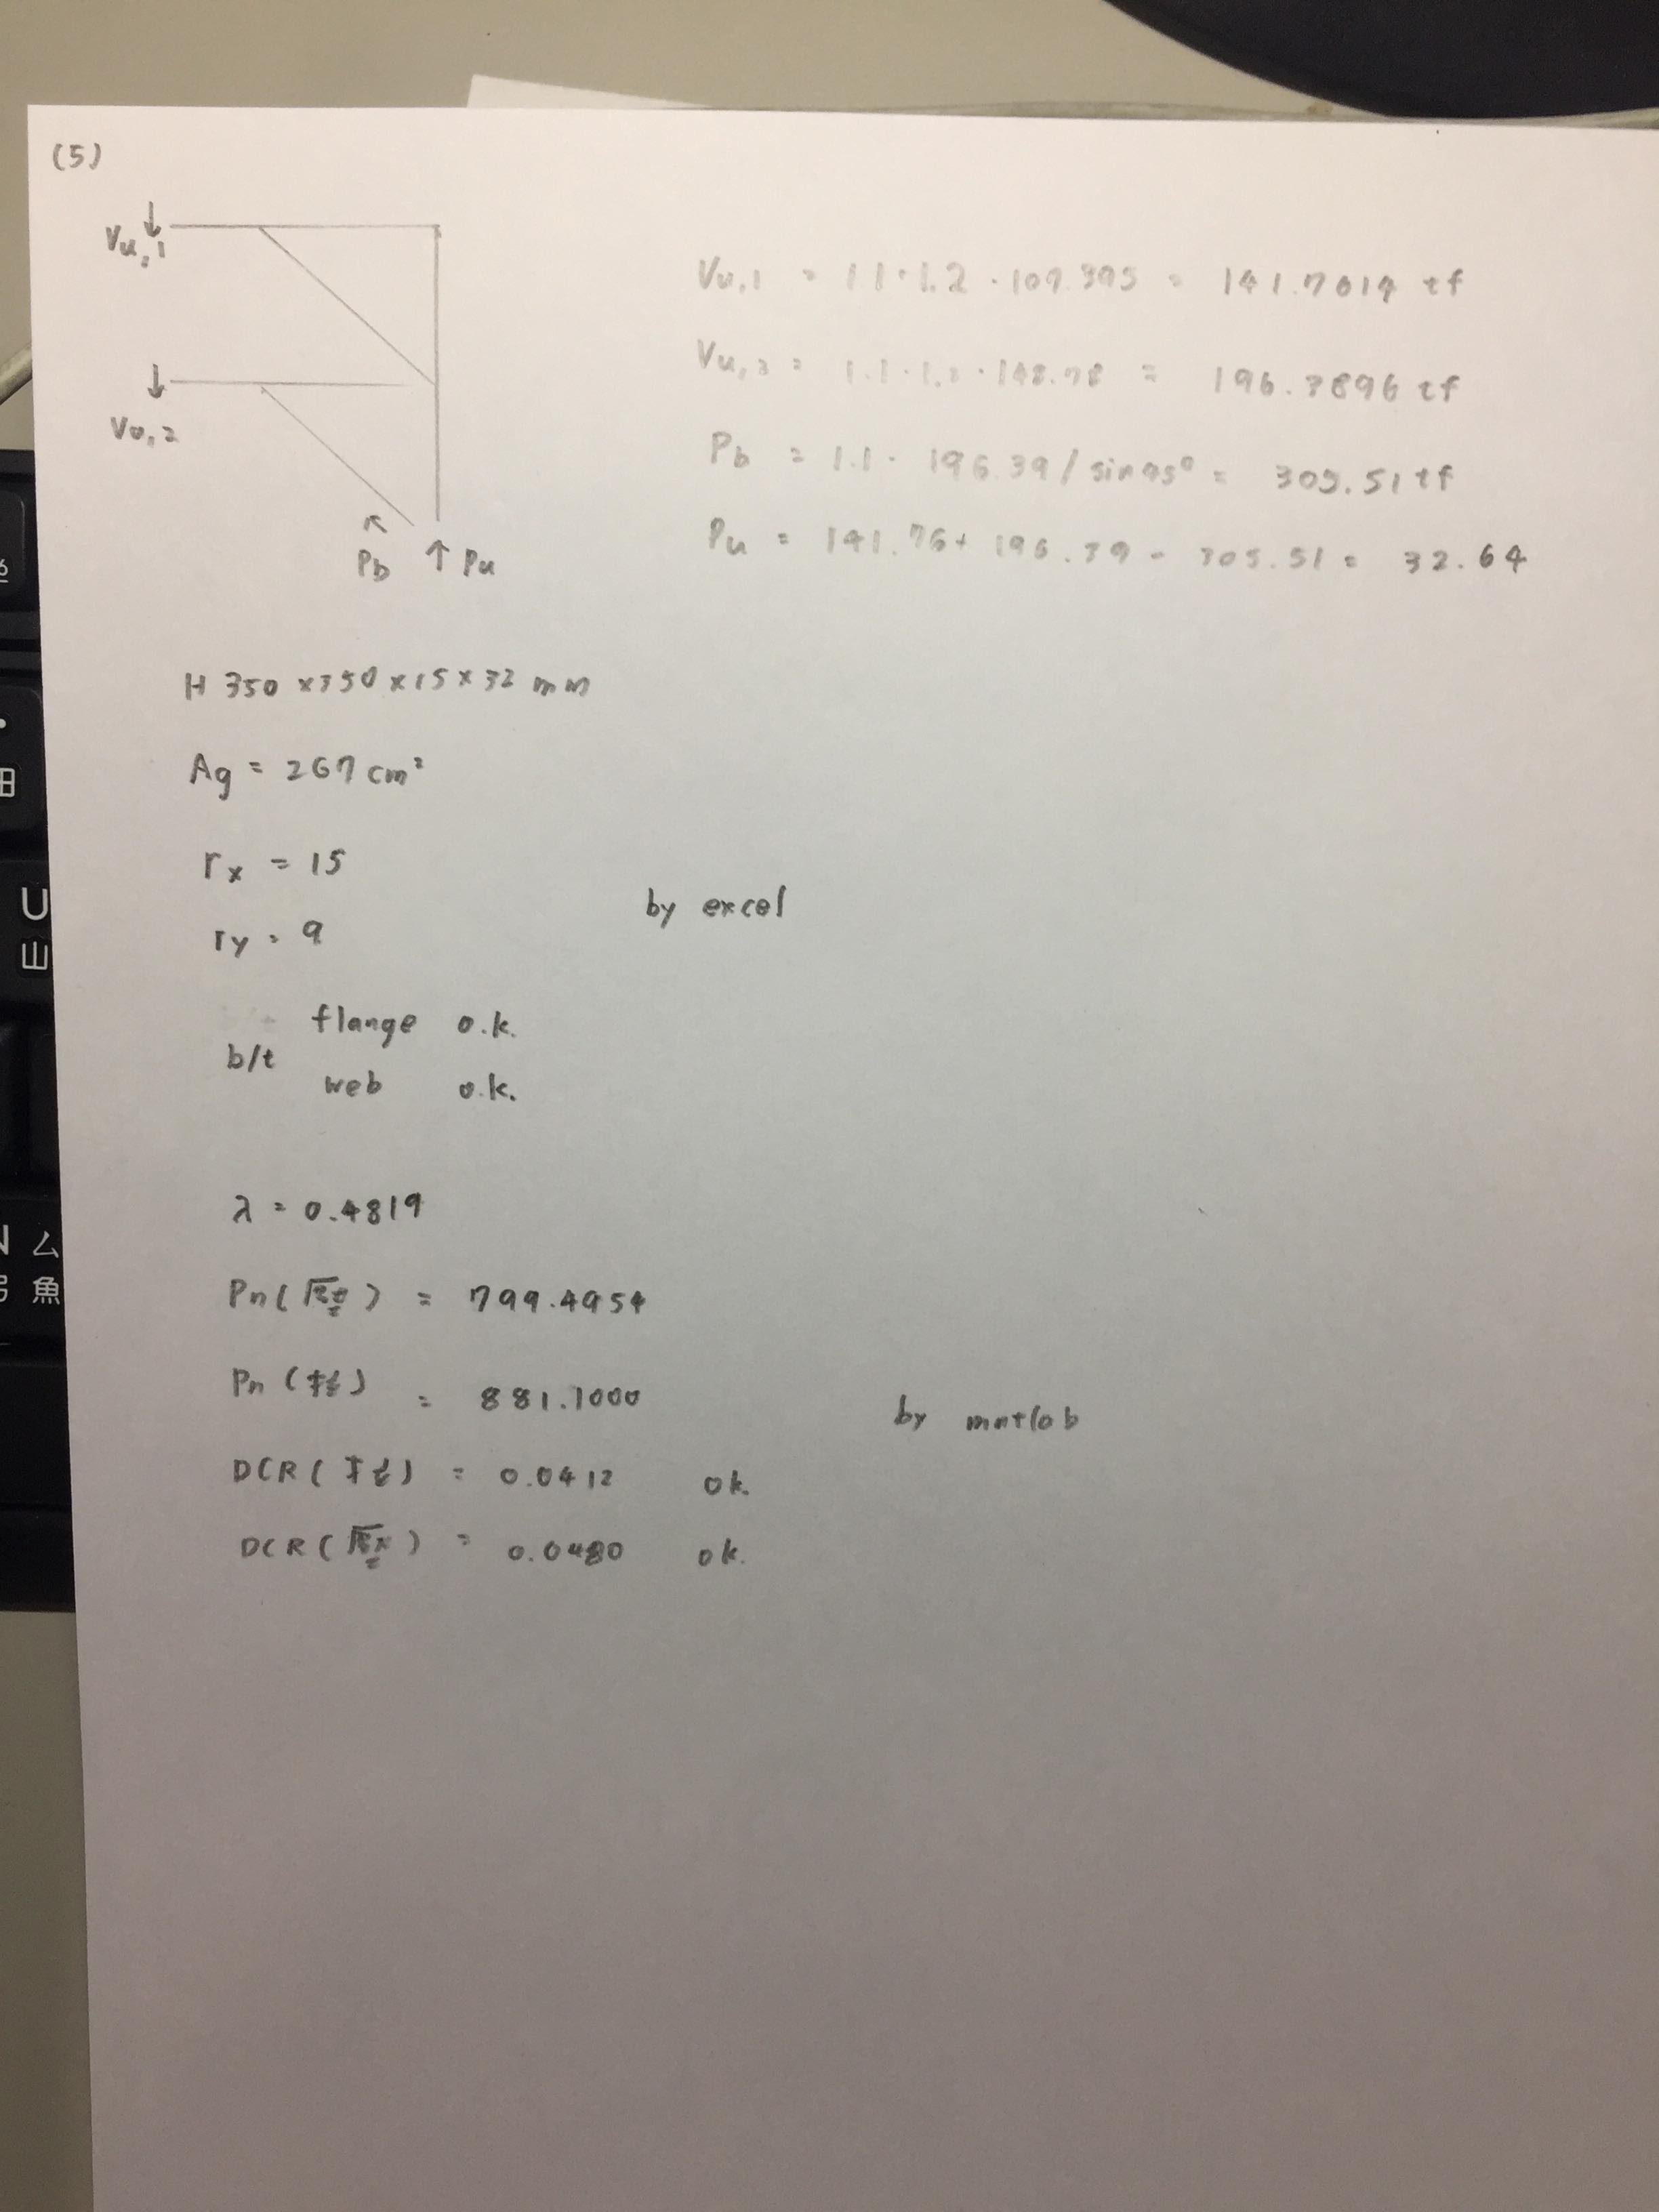 (5)
Vu,1
Vu,2
Pb ↑ Pu
Vu,1 = 1.1·1.2·107.395 = 141.7614 tf
Vu,2 = 1.1·1.2·148.78 = 196.3896 tf
Pb = 1.1·196.39/sin45° = 305.51 tf
Pu = 141.76+196.39-305.51 = 32.64
H 350×350×15×32 mm
Ag = 267 cm²
rx = 15
ry = 9
by excel
flange o.k.
b/t
web o.k.
λ = 0.4819
Pn(壓) = 799.4954
Pn(拉) = 881.1000
by matlab
DCR(拉) = 0.0412 ok.
DCR(壓) = 0.0480 ok.
6
田
U
山
N ム
弓 魚